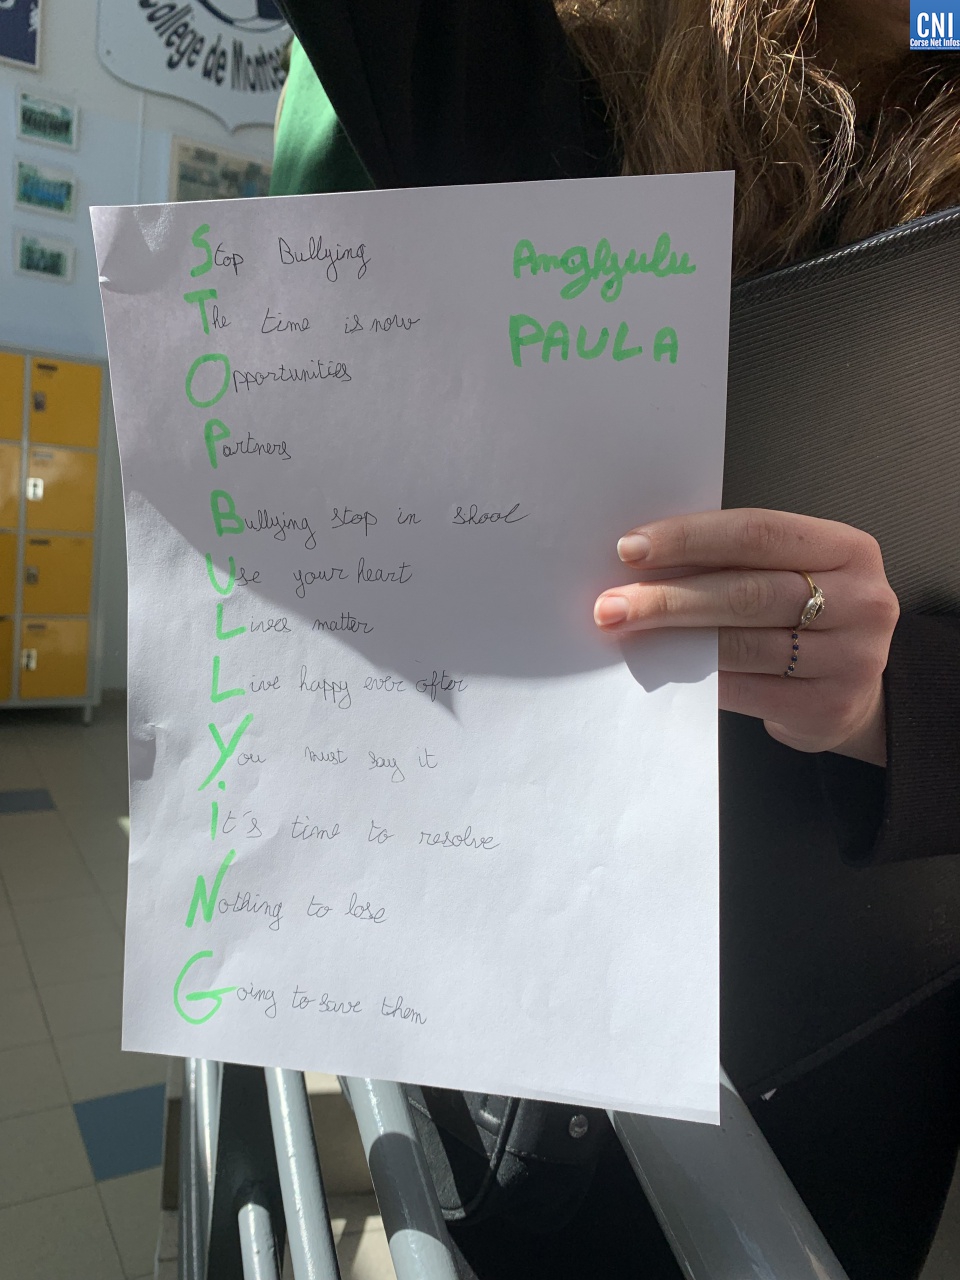 CNI
Corse Net Infos
Collège de Monte
Stop Bullying
The time is now
Opportunities
Partners
Bullying stop in shool
Use your heart
Lives matter
Live happy ever after
You must say it
It's time to resolve
Nothing to lose
Going to save them
Anglyulu
PAULA